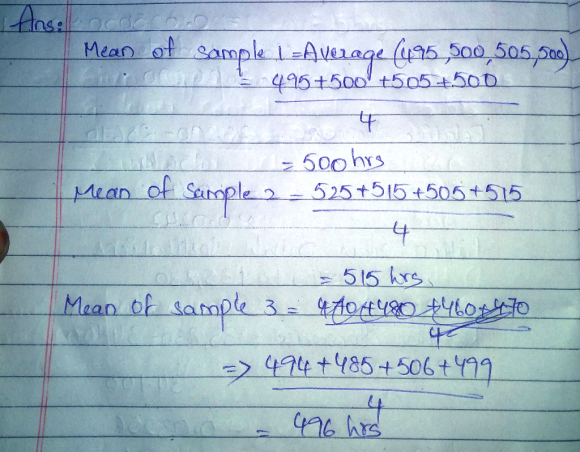 Ans:
Mean of sample 1 = Average (495,500,505,500)
= 495+500+505+500
4
= 500 hrs
Mean of Sample 2 = 525+515+505+515
4
= 515 hrs.
Mean of sample 3 = 470+480+460+470
4
=> 494+485+506+499
4
= 496 hrs